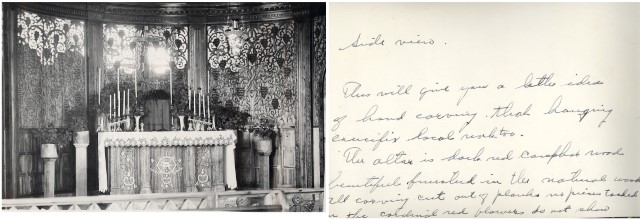 Side view.
This will give you a better idea
of hand carving. that hanging
crucifix local
The altar is dark red camphor wood
beautiful finished in the natural wood
all carving cut out of planks no pieces tacked
the cardinal red flowers do not show